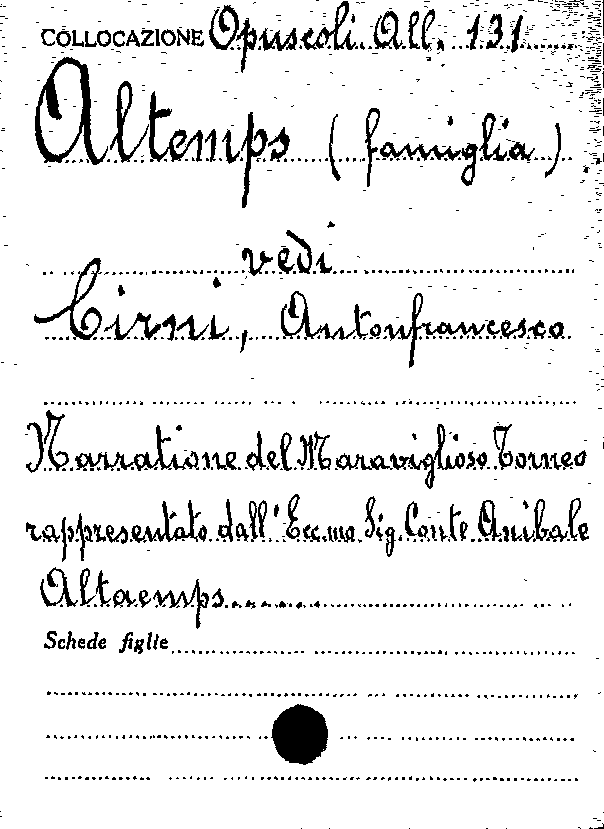 COLLOCAZIONE Opuscoli All. 131
Altemps (famiglia)
vedi
Cirni, Antonfrancesco
Narratione del Maraviglioso Torneo
rappresentato dall'Ecc.mo Sig. Conte Anibale
Altaemps.......
Schede figlie